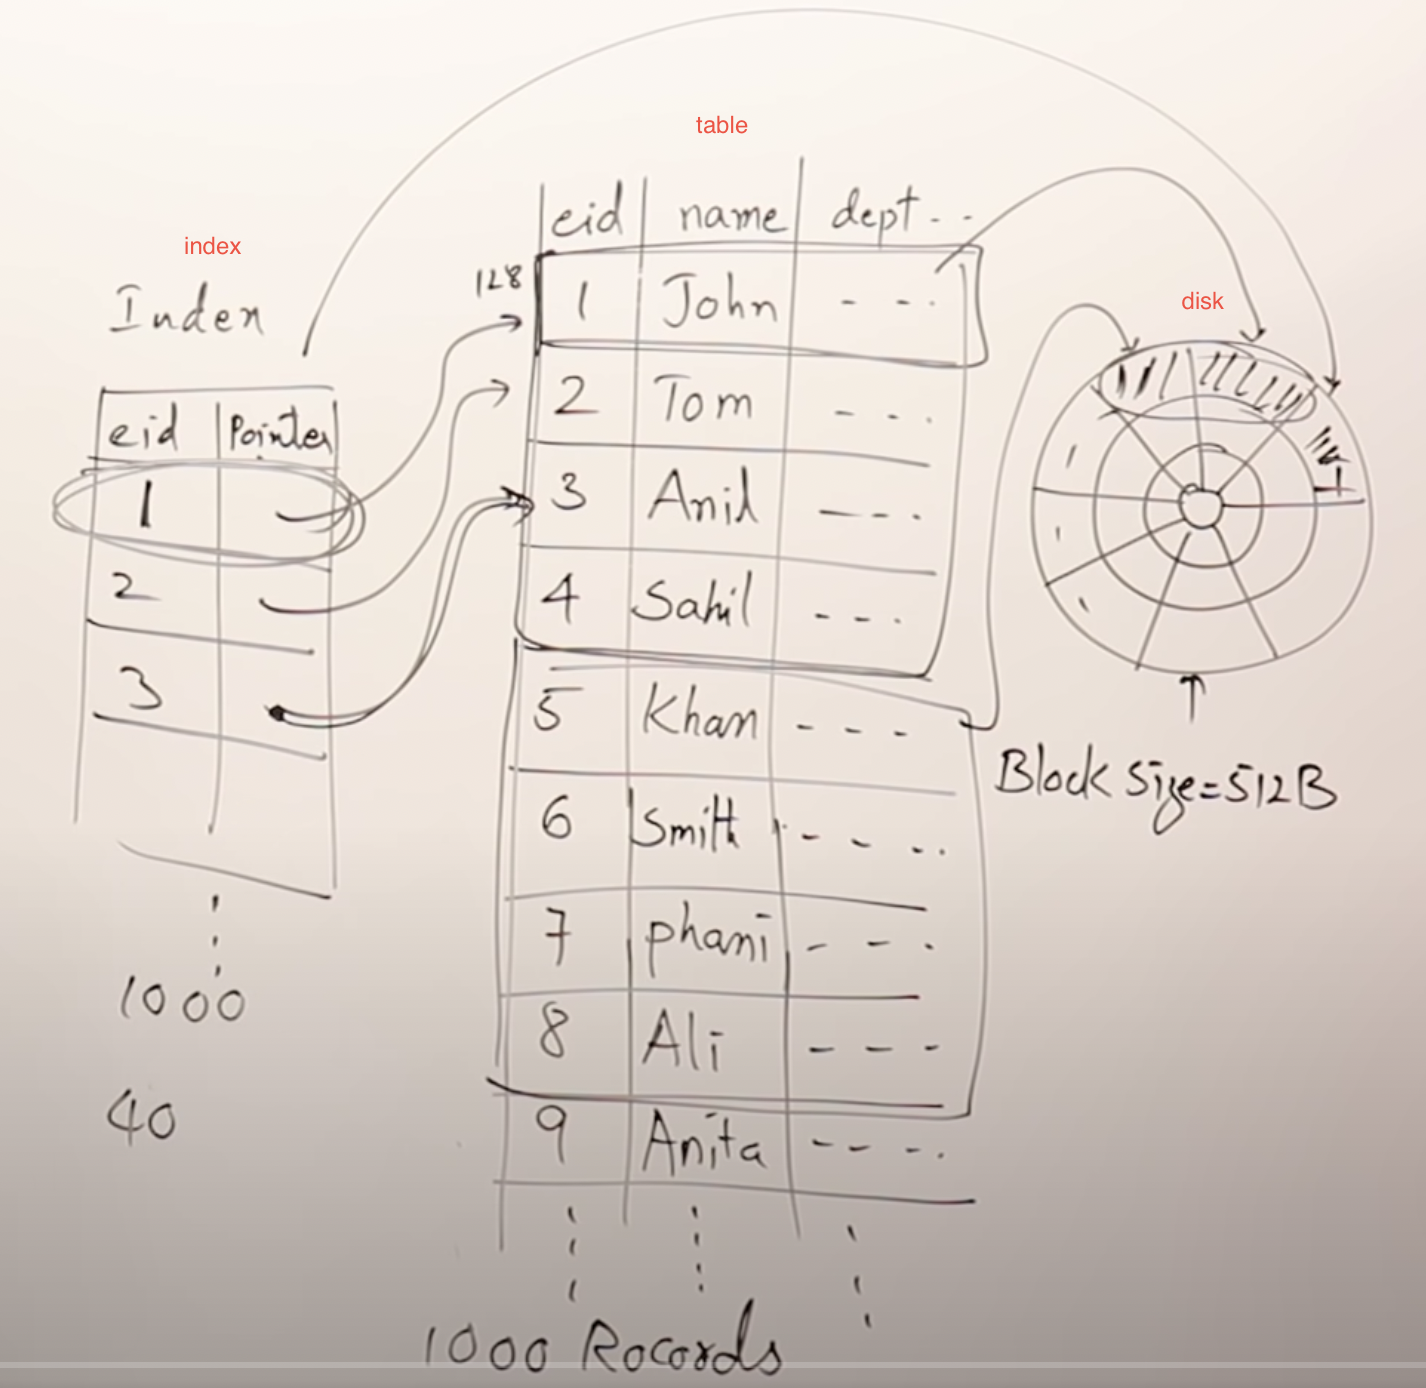 table
index
disk
Index
eid Pointer
1
2
3
1000
40
128
eid name dept
1 John
2 Tom
3 Anil
4 Sahil
5 Khan
6 Smith
7 phani
8 Ali
9 Anita
1000 Rocords
Block Size=512B